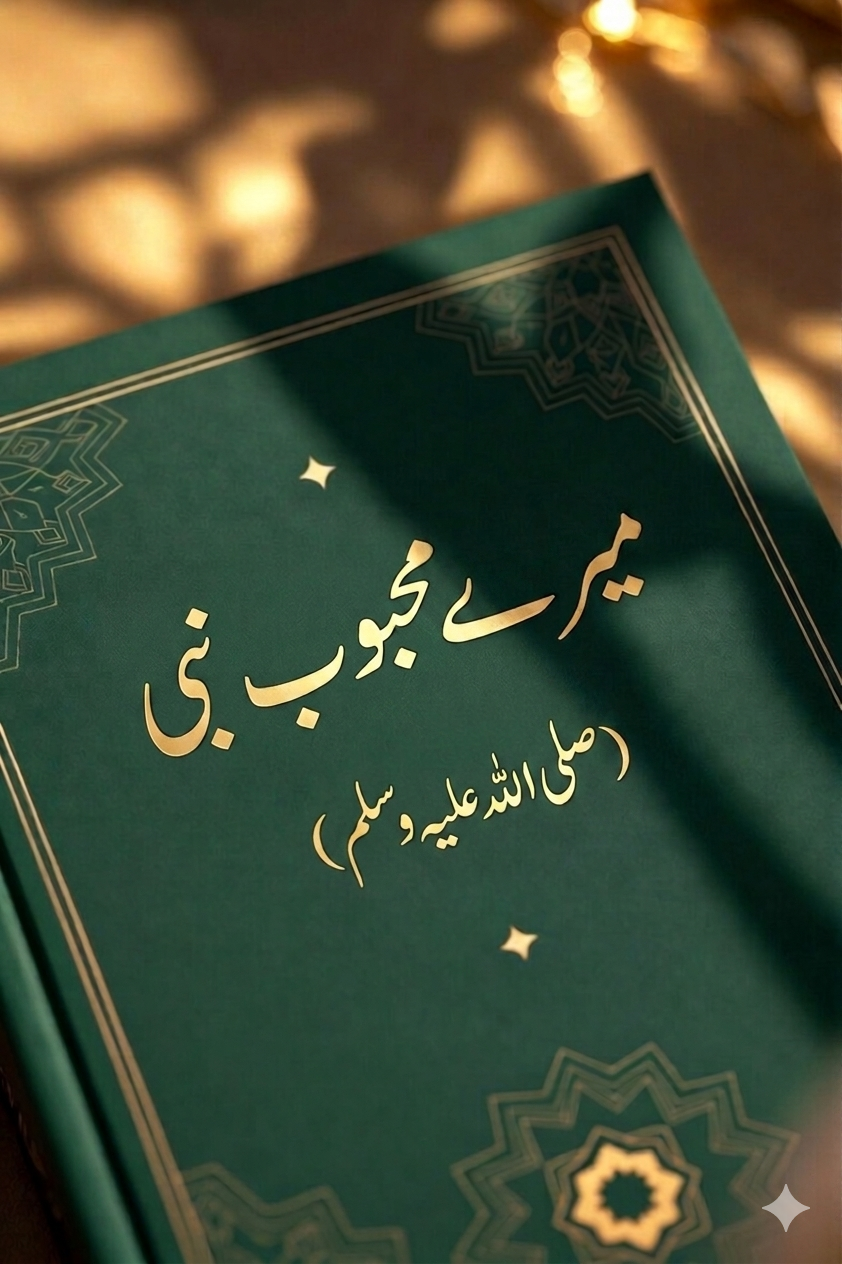 میرے محبوب نبی
(صلی اللہ علیہ وسلم)